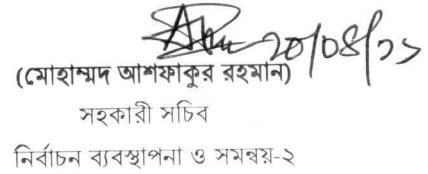 ২০/০৪/২১
(মোহাম্মদ আশফাকুর রহমান)
সহকারী সচিব
নির্বাচন ব্যবস্থাপনা ও সমন্বয়-২